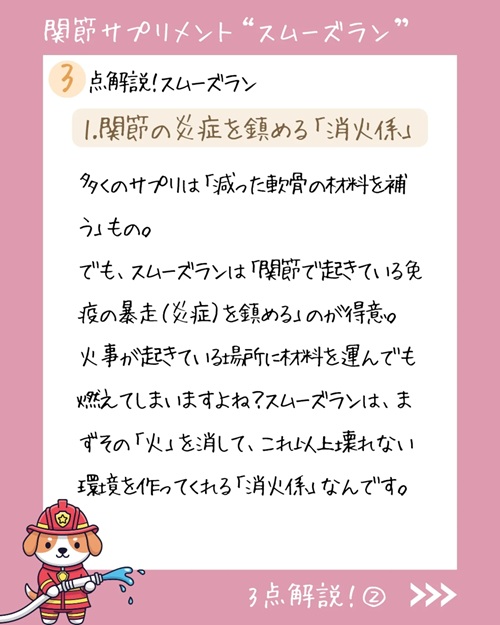 関節サプリメント“スムーズラン”
3点解説!スムーズラン
1.関節の炎症を鎮める「消火係」
多くのサプリは「減った軟骨の材料を補
う」もの。
でも、スムーズランは「関節で起きている免
疫の暴走(炎症)を鎮める」のが得意。
火事が起きている場所に材料を運んでも
燃えてしまいますよね?スムーズランは、ま
ずその「火」を消して、これ以上壊れない
環境を作ってくれる「消火係」なんです。
3点解説!②